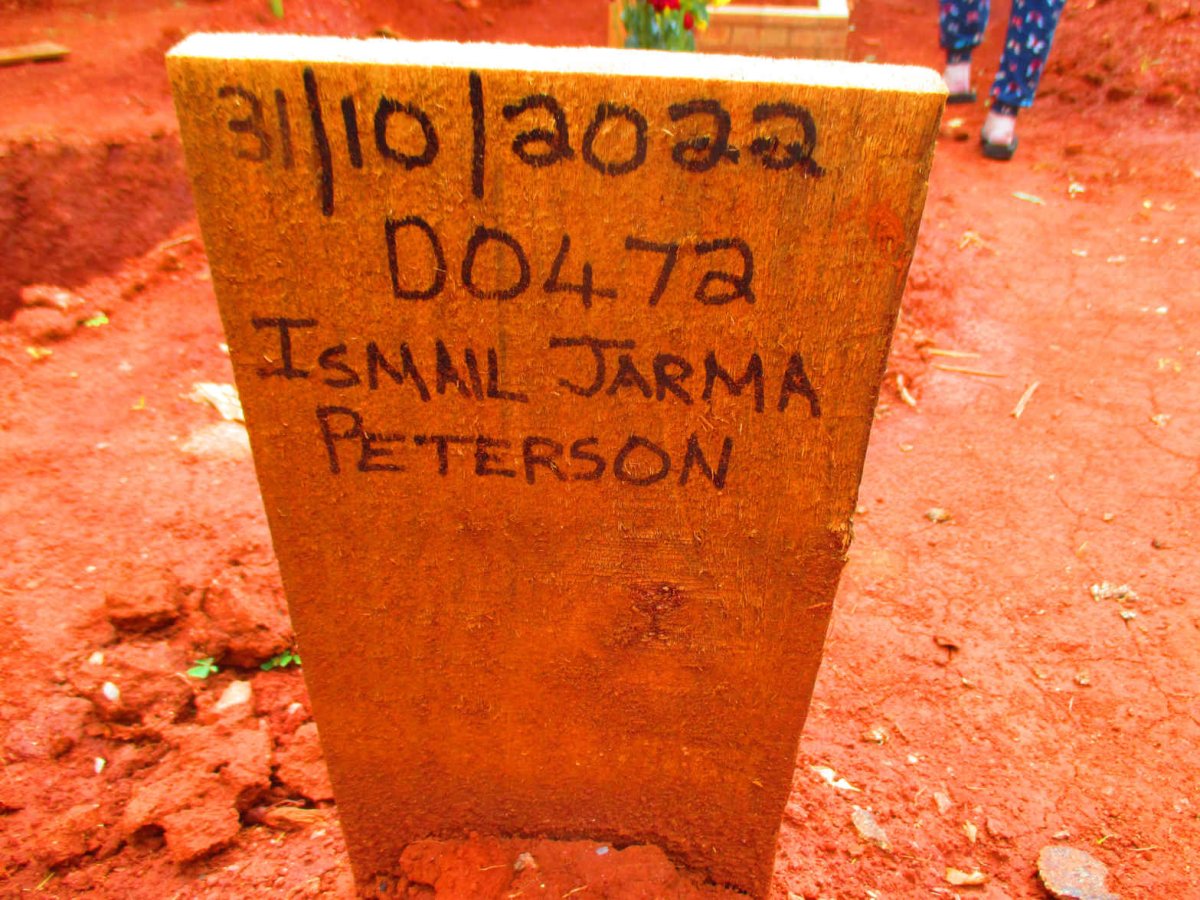 31/10/2022
D0472
ISMAIL JARMA
PETERSON